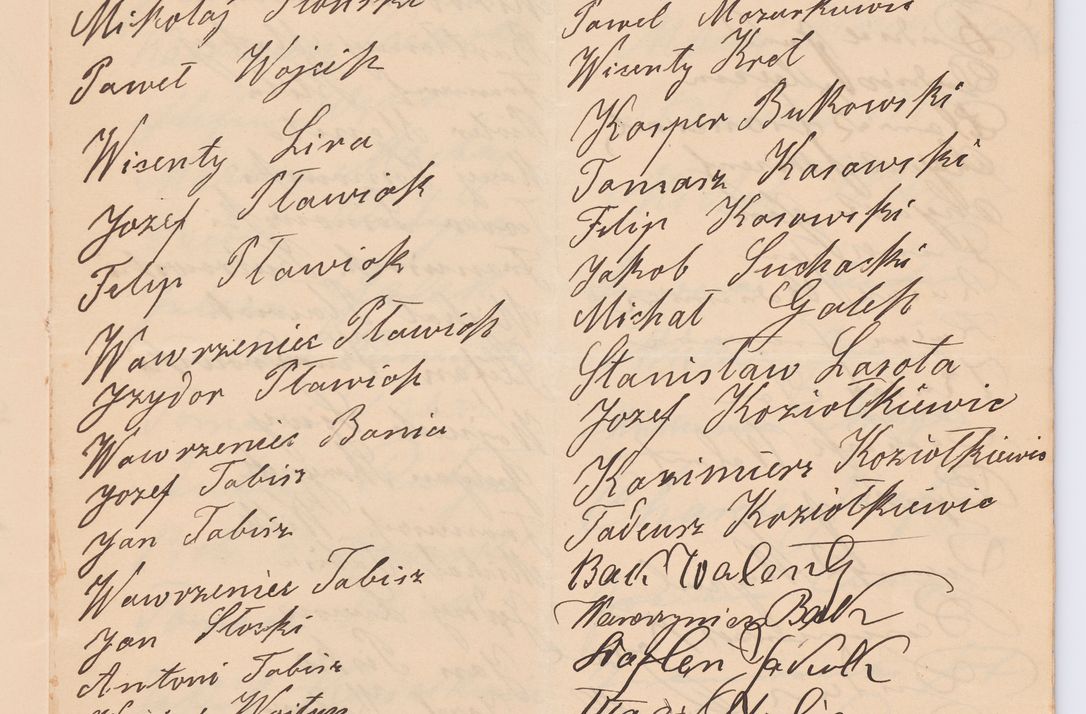 Mikołaj
Paweł Wojcik
Wisenty Lira
Jozef Pławiok
Filip Pławiok
Wawrzeniec Pławiok
Jzydor Pławiok
Wawrzeniec Bania
Jozef Tabisz
Jan Tabisz
Wawrzeniec Tabisz
Jan Słoski
Antoni Tabisz
Paweł Mozurkiewic
Wisenty Kret
Kosper Bukowski
Tomasz Kasowski
Filip Kosowski
Jakob Suchacki
Michał Gołek
Stanisław Lasota
Jozef Koziołkiewic
Kazimierz Koziołkiewic
Tadeusz Koziołkiewic
Bak Walenty
Wawrzyniec Bąk